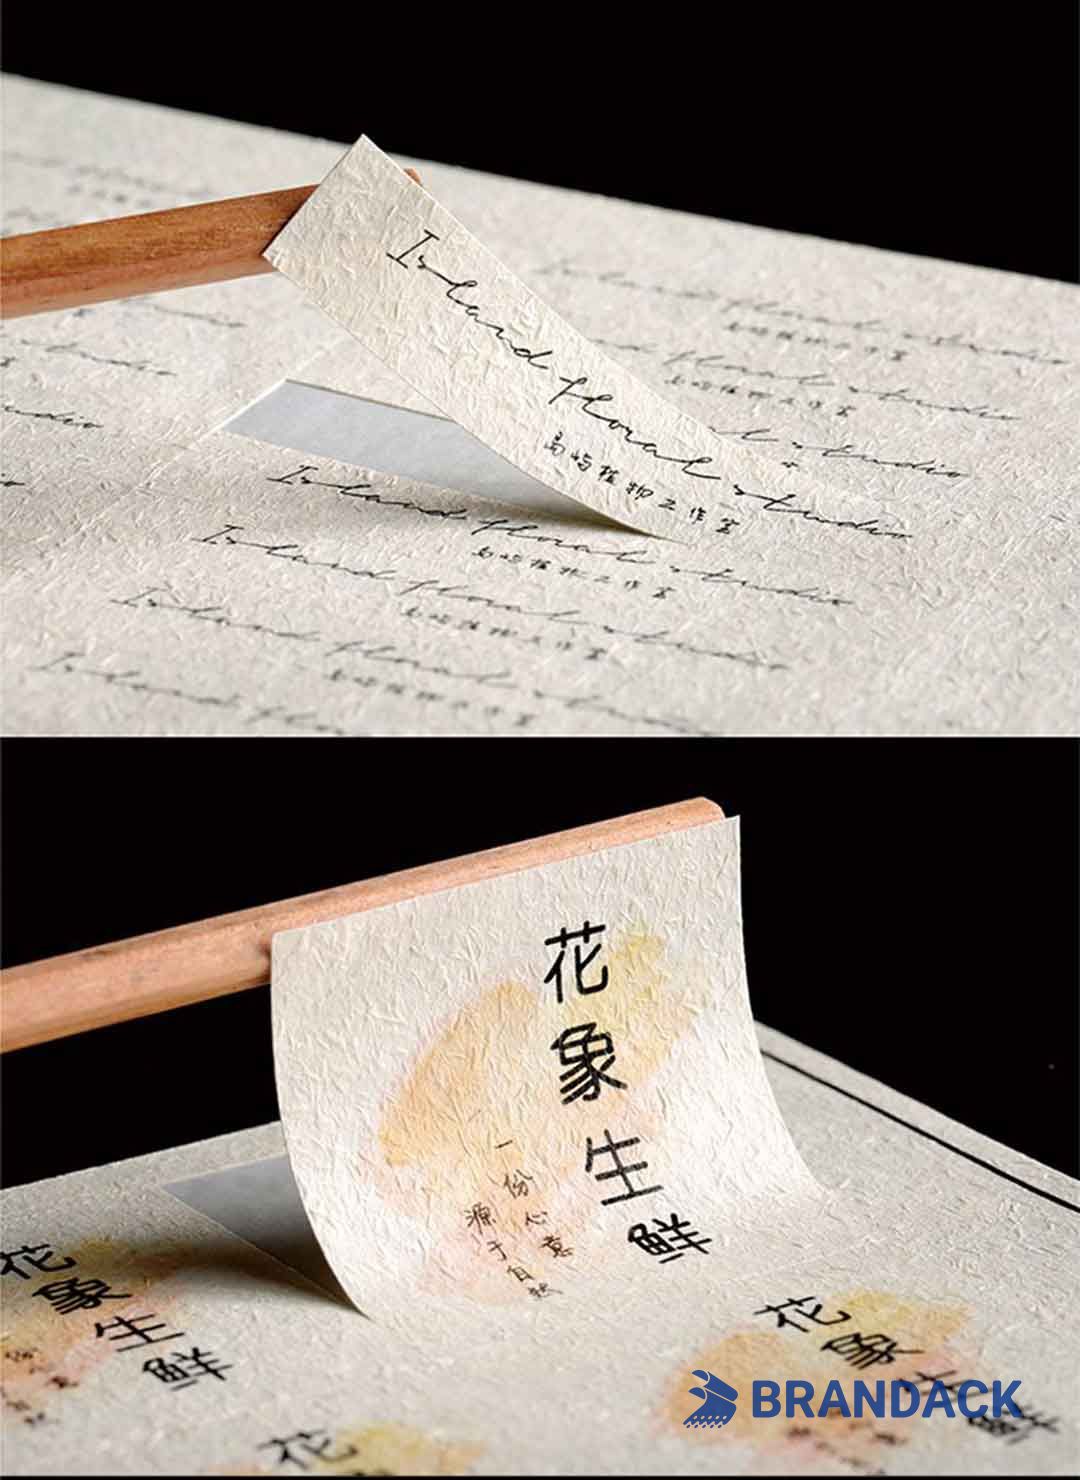 Island floral studio
岛屿植物工作室
Island floral studio
岛屿植物工作室
Island floral studio
岛屿植物工作室
Island floral studio
岛屿植物工作室
Island floral
岛屿植物
studio
岛屿植物工作室
studio
岛屿植物工作室
studio
花象生鲜
一份心意
源于自然
花象生鲜
花象生鲜
花
BRANDACK